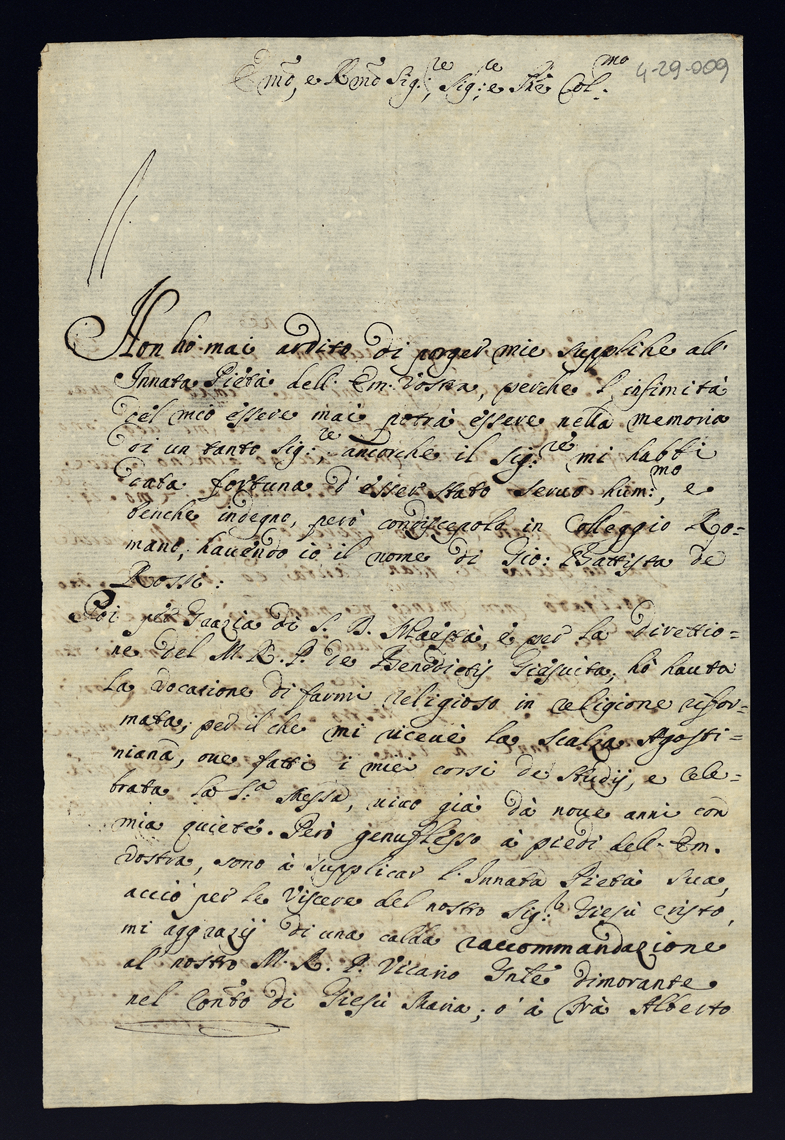 Em̃o, e Rm̃o Sig:re, Sig:re e Pñe Col:mo
4-29-009
Non hò mai ardito di porger mie suppliche all'
Innata Pietà dell' Em. Vostra, perche l'infimità
del mio essere mai potrà essere nella memoria
di un tanto Sig:re ancorche il Sig:re mi habbi
data fortuna d'esser stato seruo hum:mo, e
benche indegno, però condiscepolo in Colleggio Ro=
mano, hauendo io il nome di Gio: Battista de
Rossi:
Poi per Grazia di S. D. Maestà, e per la diretio=
ne del M. R. P. de Benedictis Giesuita, hò hauta
la vocazione di farmi religioso in religione rifor=
mata; per il che mi riceuè la scalza Agosti=
niana, oue fatti i miei corsi de Studij, e cele=
brata la S.a Messa, uiuo già dà noue anni con
mia quiete. Però genuflesso à piedi dell' Em.
Vostra, sono à supplicar l'Innata Pietà sua,
acciò per le Viscere del nostro Sig:re Giesù Cristo,
mi aggrazij di una calda raccommandazione
al nostro M. R. P. Vicario Gñle dimorante
nel Conto di Giesù Maria; ò à Frà Alberto